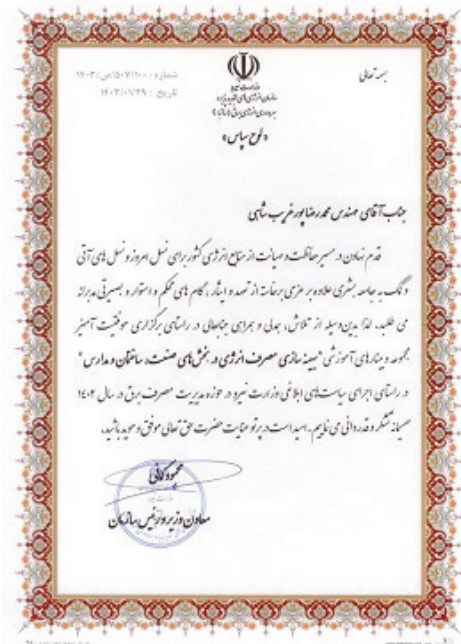 بسمه تعالی
شماره : ۱۴۰۳/ص/۵۰۷/۱۰۰
تاریخ : ۱۴۰۳/۰۱/۲۹
وزارت نیرو
سازمان انرژی‌های تجدیدپذیر و
بهره‌وری انرژی برق (ساتبا)
«لوح سپاس»
جناب آقای مهندس محمدرضا پور غریب شاهی
قدم نهادن در مسیر حفاظت و صیانت از منابع انرژی کشور برای نسل امروز و نسل های آتی
و کمک به جامعه بشری علاوه بر عزمی برخاسته از تعهد و ایثار، گام های محکم و استوار و بصیرتی مدبرانه
می طلبد. لذا بدین وسیله از تلاش، همدلی و همراهی جنابعالی در راستای برگزاری موفقیت آمیز
مجموعه وبینارهای آموزشی "بهینه سازی مصرف انرژی در بخش های صنعت، ساختمان و مدارس"
در راستای اجرای سیاست های ابلاغی وزارت نیرو در حوزه مدیریت مصرف برق در سال ۱۴۰۲
صمیمانه تشکر و قدردانی می نماییم. امید است در پرتو عنایت حضرت حق تعالی موفق و موید باشید.
محمود کمانی
معاون وزیر و رئیس سازمان